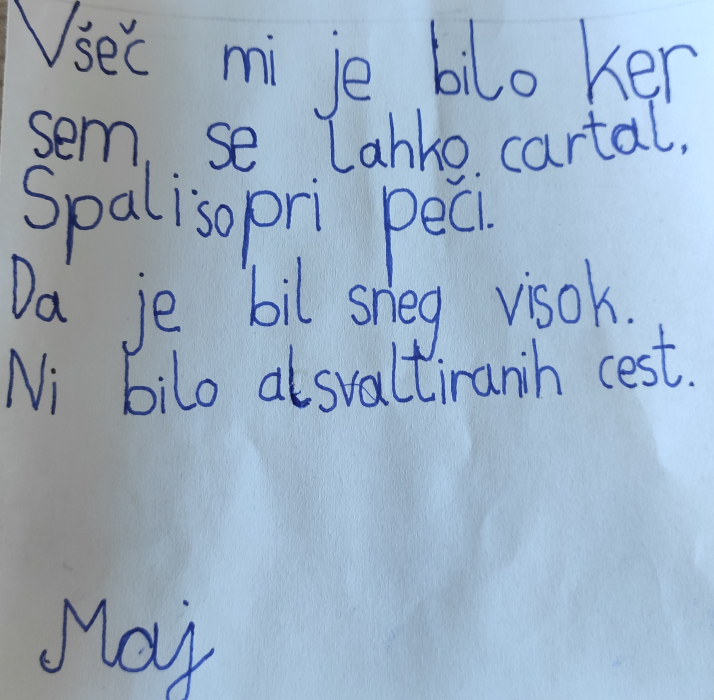 Všeč mi je bilo ker
sem se lahko cartal.
Spali so pri peči.
Da je bil sneg visok.
Ni bilo alsvaltiranih cest.
Maj